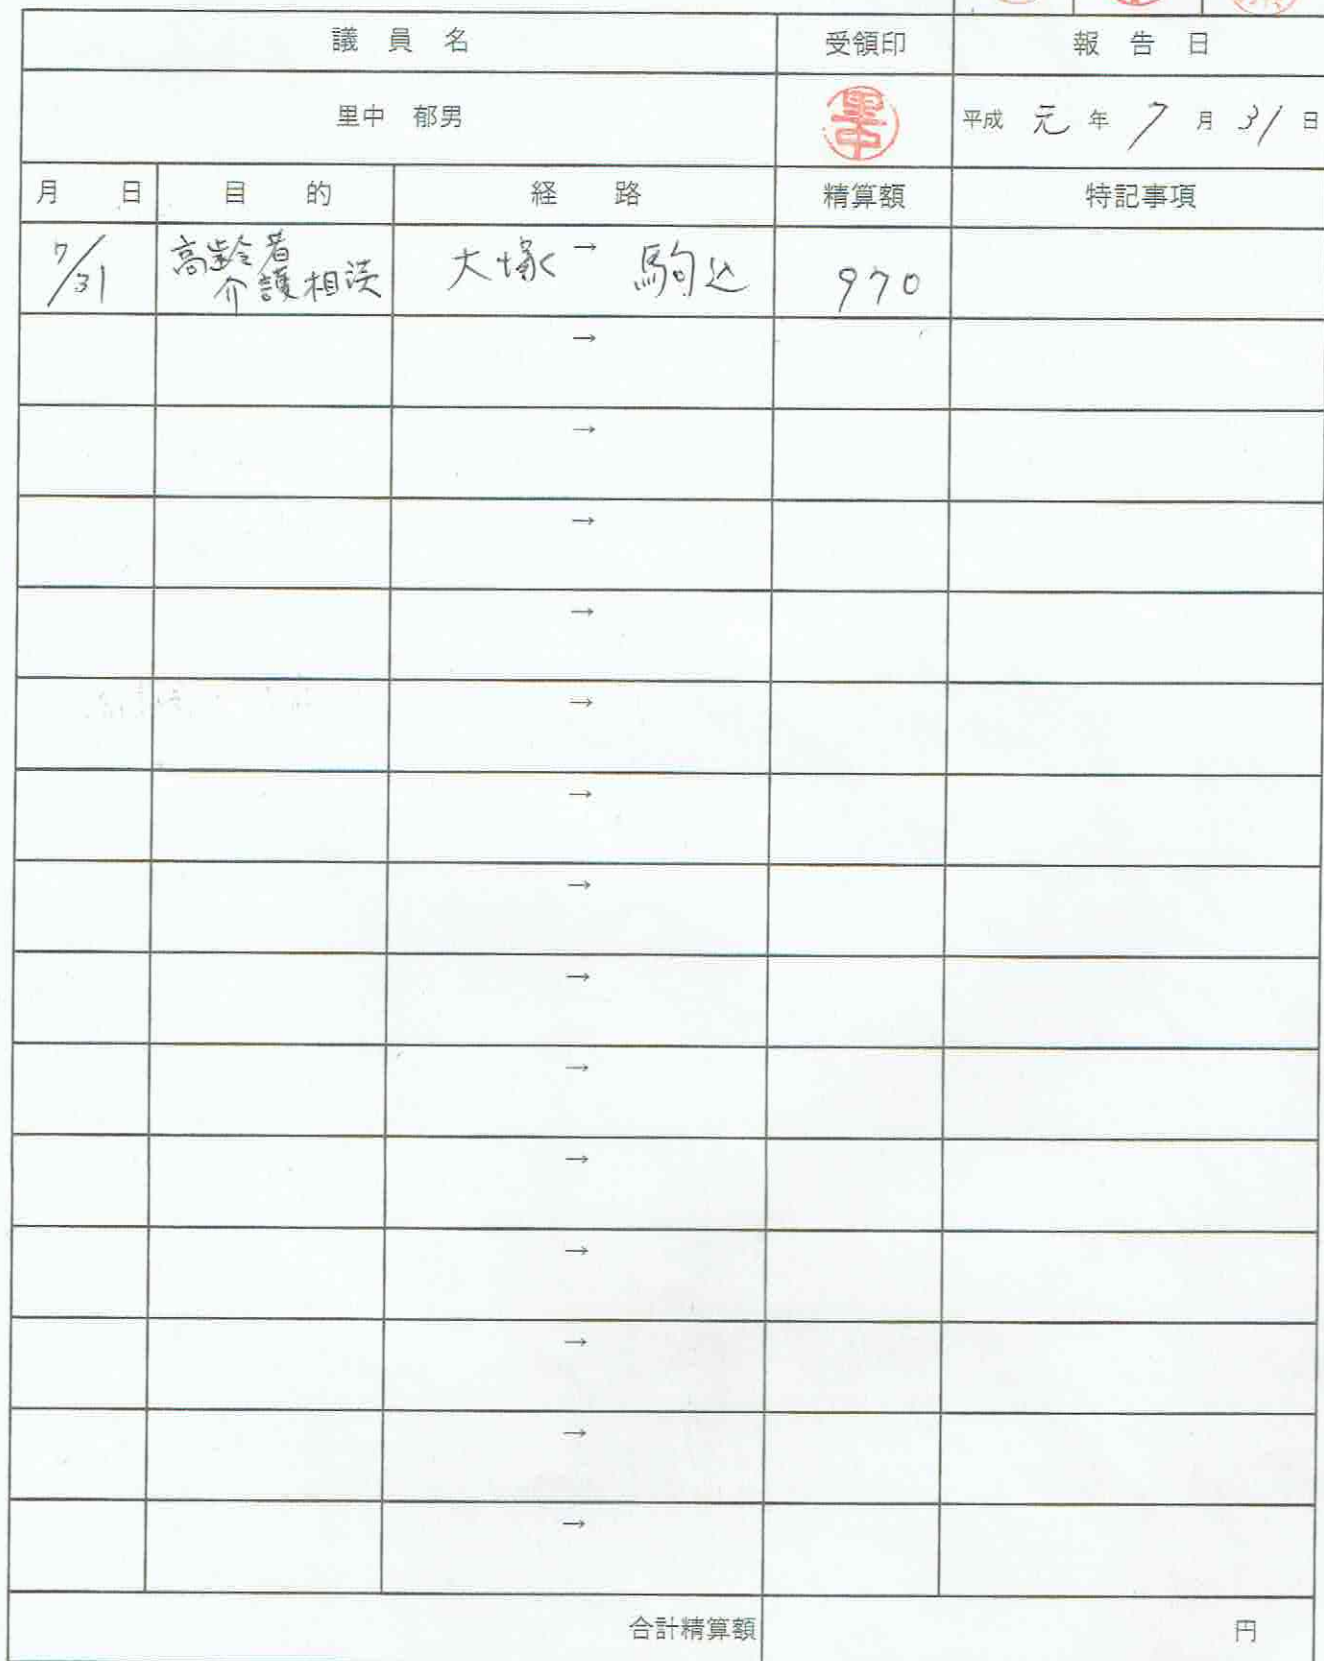 議員名 受領印 報告日
里中 郁男 里中 平成 元 年 7 月 31 日
月 日 目的 経路 精算額 特記事項
7/31 高齢者 大塚 → 駒込 970
介護相談
→
→
→
→
→
→
→
→
→
→
→
→
→
→
合計精算額 円